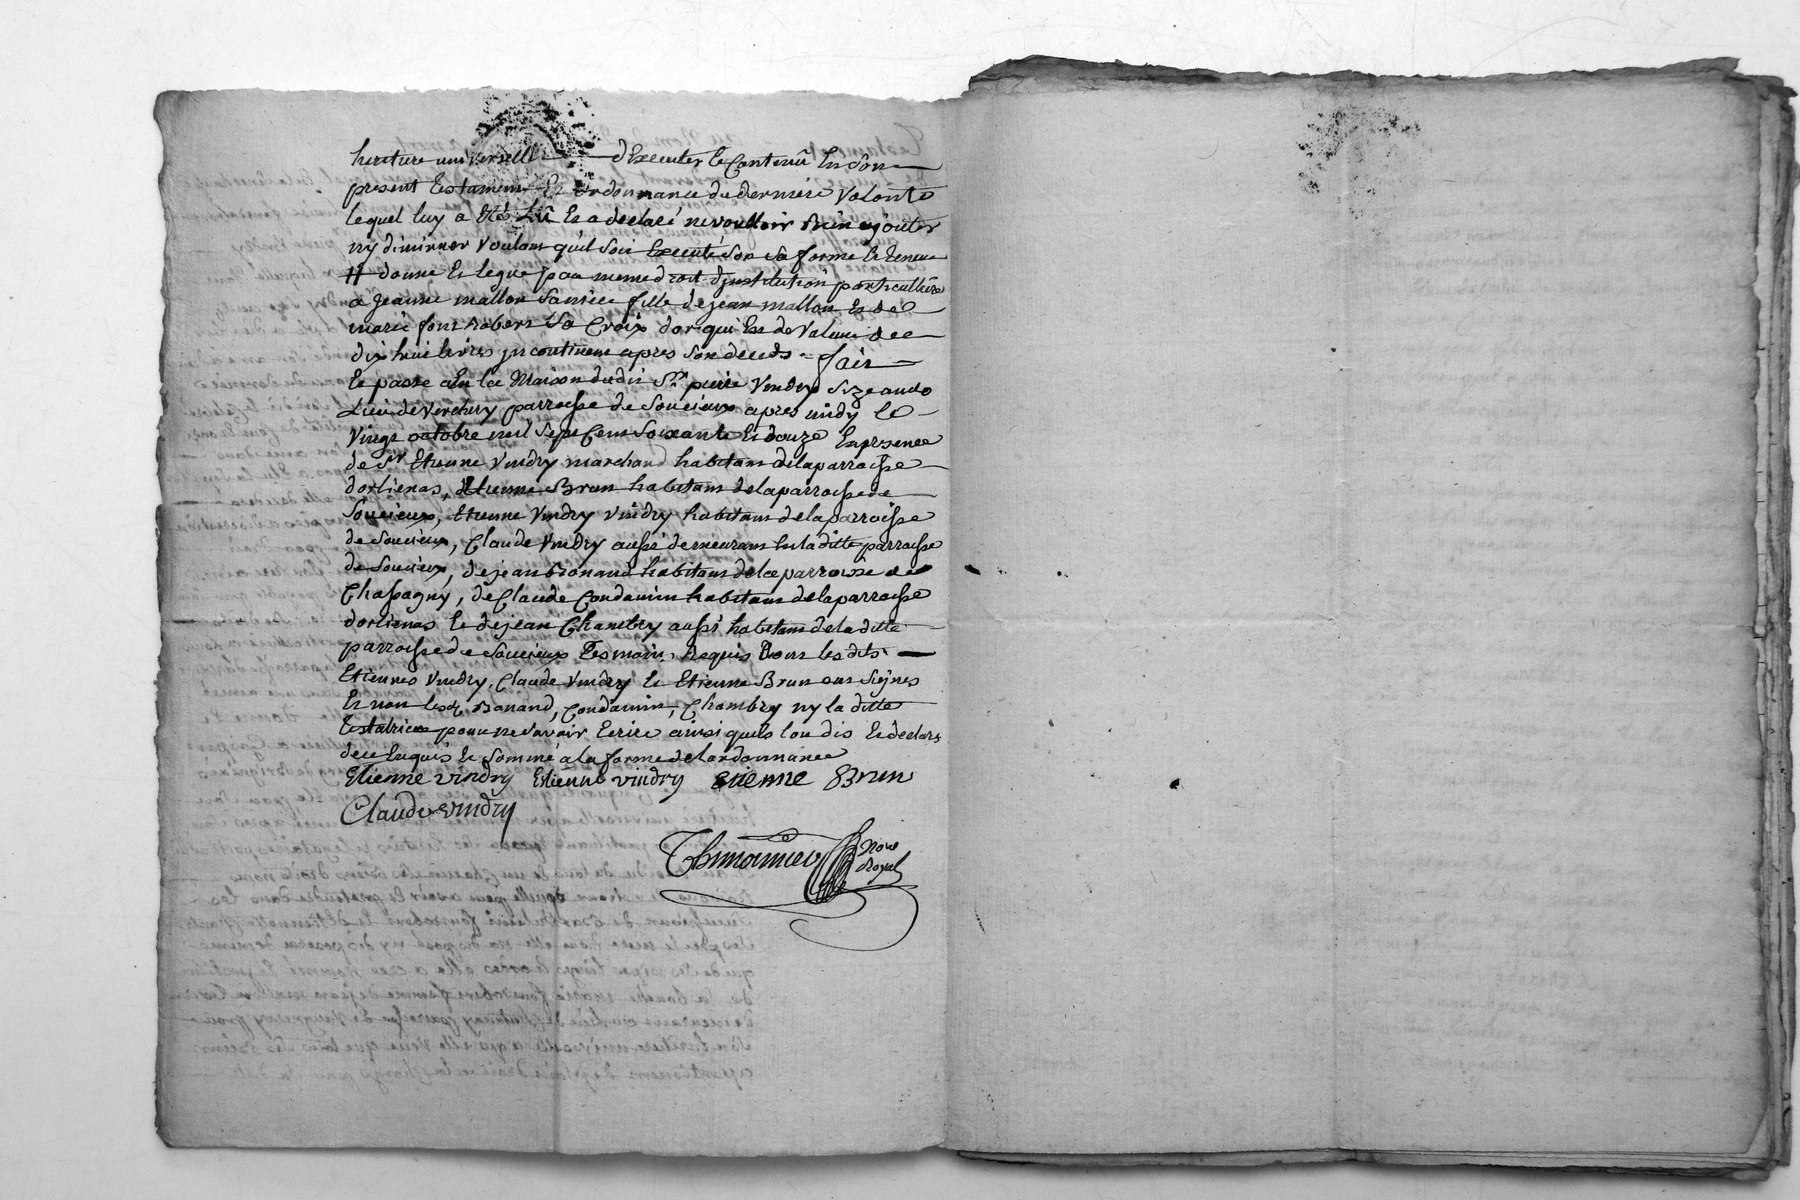 heritiere universelle d'Executer le Contenu En son
present testament Et ordonnance de derniere Volonté
lequel luy a eté Lû Et a declaré ne voulloir Rien ajouter
ny diminuer Voulant qu'il soit Executé son sa forme Et teneur
donne Et legue par meme droit d'institution particulliere
a jeanne mallon sa niece fille de jean mallon Et de
marie fonrobert sa Croix d'or qui Est de Valeur de
dix huit livres incontinent apres son deceds - fait
Et passé En la Maison dudit Sr. pierre Vindry size audo
Lieu de Verchery parroisse de Soucieux apres midy le
Vingt octobre mil Sept Cent Soixante Et douze En presence
de Sr Etienne Vindry marchand habitant de la parroisse
d'orlienas, Etienne Brun habitant de la parroisse de
Soucieux, Etienne Vindry Vindry habitant de la parroisse
de Soucieux, Claude Vindry aussi demeurant En la ditte parroisse
de Soucieux, de jean Bonand habitant de la parroisse de
Chassagny, de Claude Condamin habitant de la parroisse
d'orlienas Et de jean Chambry aussi habitant de la ditte
parroisse de Soucieux Tesmoins Requis Dont les dits
Etiennes Vindry, Claude Vindry Et Etienne Brun ont Signes
Et non lesd. Bonand, Condamin, Chambry ny la ditte
testatrice pour ne Savoir Ecrire ainsi quels l'on dit Et declaré
de ce Enquis Et Sommé a la forme de l'ordonnance
Etienne vindry Etienne vindry etienne Brun
Claude vindry
Thimonnier Nore
Royal